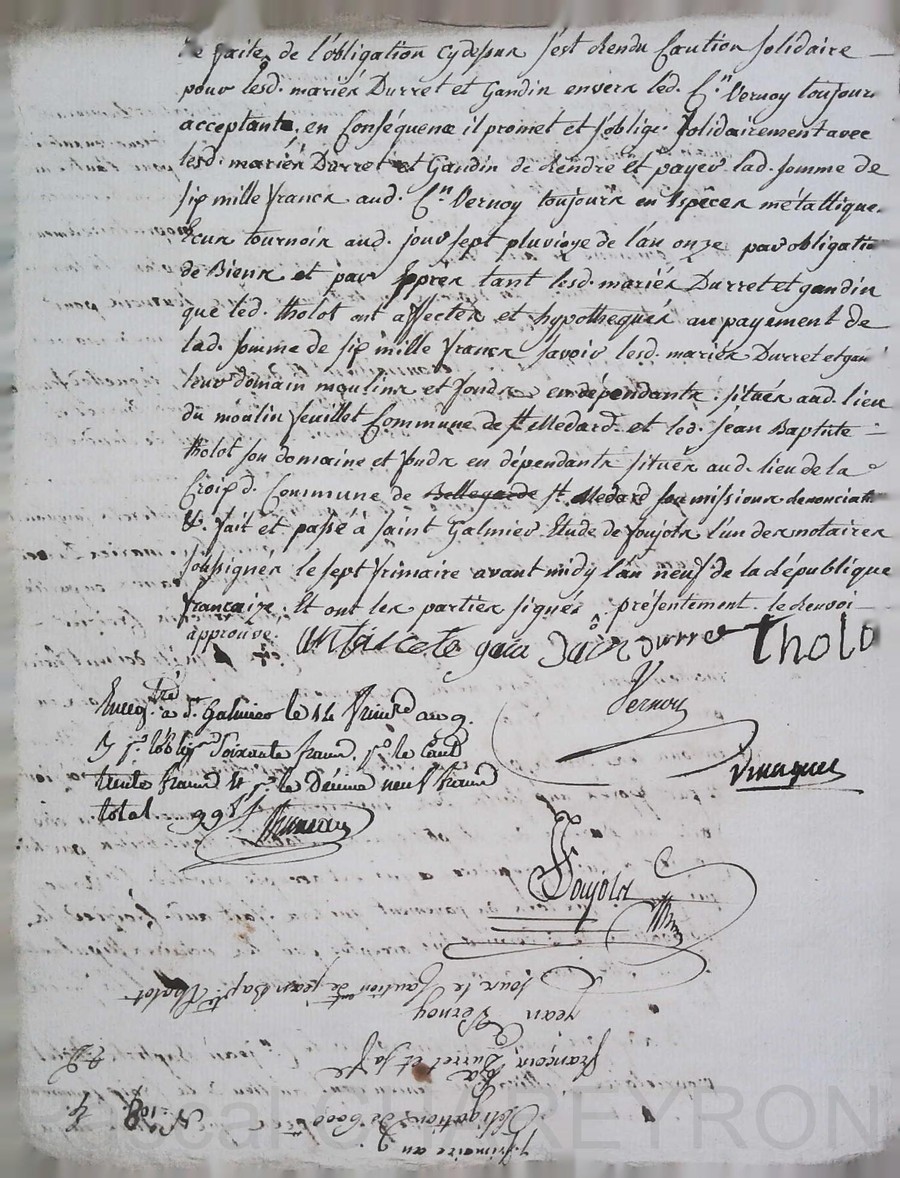 de l'obligation cydessus s'est Rendu Caution solidaire
pour lesd. mariés Durret et Gandin envers led. C.en Vernoy toujours
acceptant, en Conséquence il promet et s'oblige solidairement avec
lesd. mariés Durret et Gandin de Rendre et payer lad. somme de
six mille francs aud. C.en Vernoy toujours en Espèces métallique
Ecus tournois aud. jour sept pluviose de l'an onze par obligatio
de Biens et par Exprès tant lesd. mariés Durret et gandin
que led. tholot ont affectés et hypothequés au payement de
lad. somme de six mille francs savoir lesd. mariés Durret et gan
leur domain moulins et fonds en dépendants situés aud. lieu
du moulin feuillet Commune de St Medard. et led. jean Baptiste
tholot son domaine et fonds en dépendants situés aud. lieu de la
Croix d. Commune de Bellegarde St. Medard soumissions renonciat
&. fait et passé à Saint Galmier Etude de Soujols l'un des notaires
soussignés le sept frimaire avant midy l'an neuf de la République
française. Et ont les parties signés présentement. le Renvoi
approuvé.
Durret tholo
Vernoy
Enreg.tré à St. Galmier le 14 frimre an 9.
soixante francs
trente francs neuf francs
total 99 f
Soujols
7. frimaire an 9.
Obligation de 6000 fcs
N.o 108
françois Durret et sa fe
à
jean Vernoy
sous le Cautionent de jean Bapte tholot
Pascal CHAREYRON